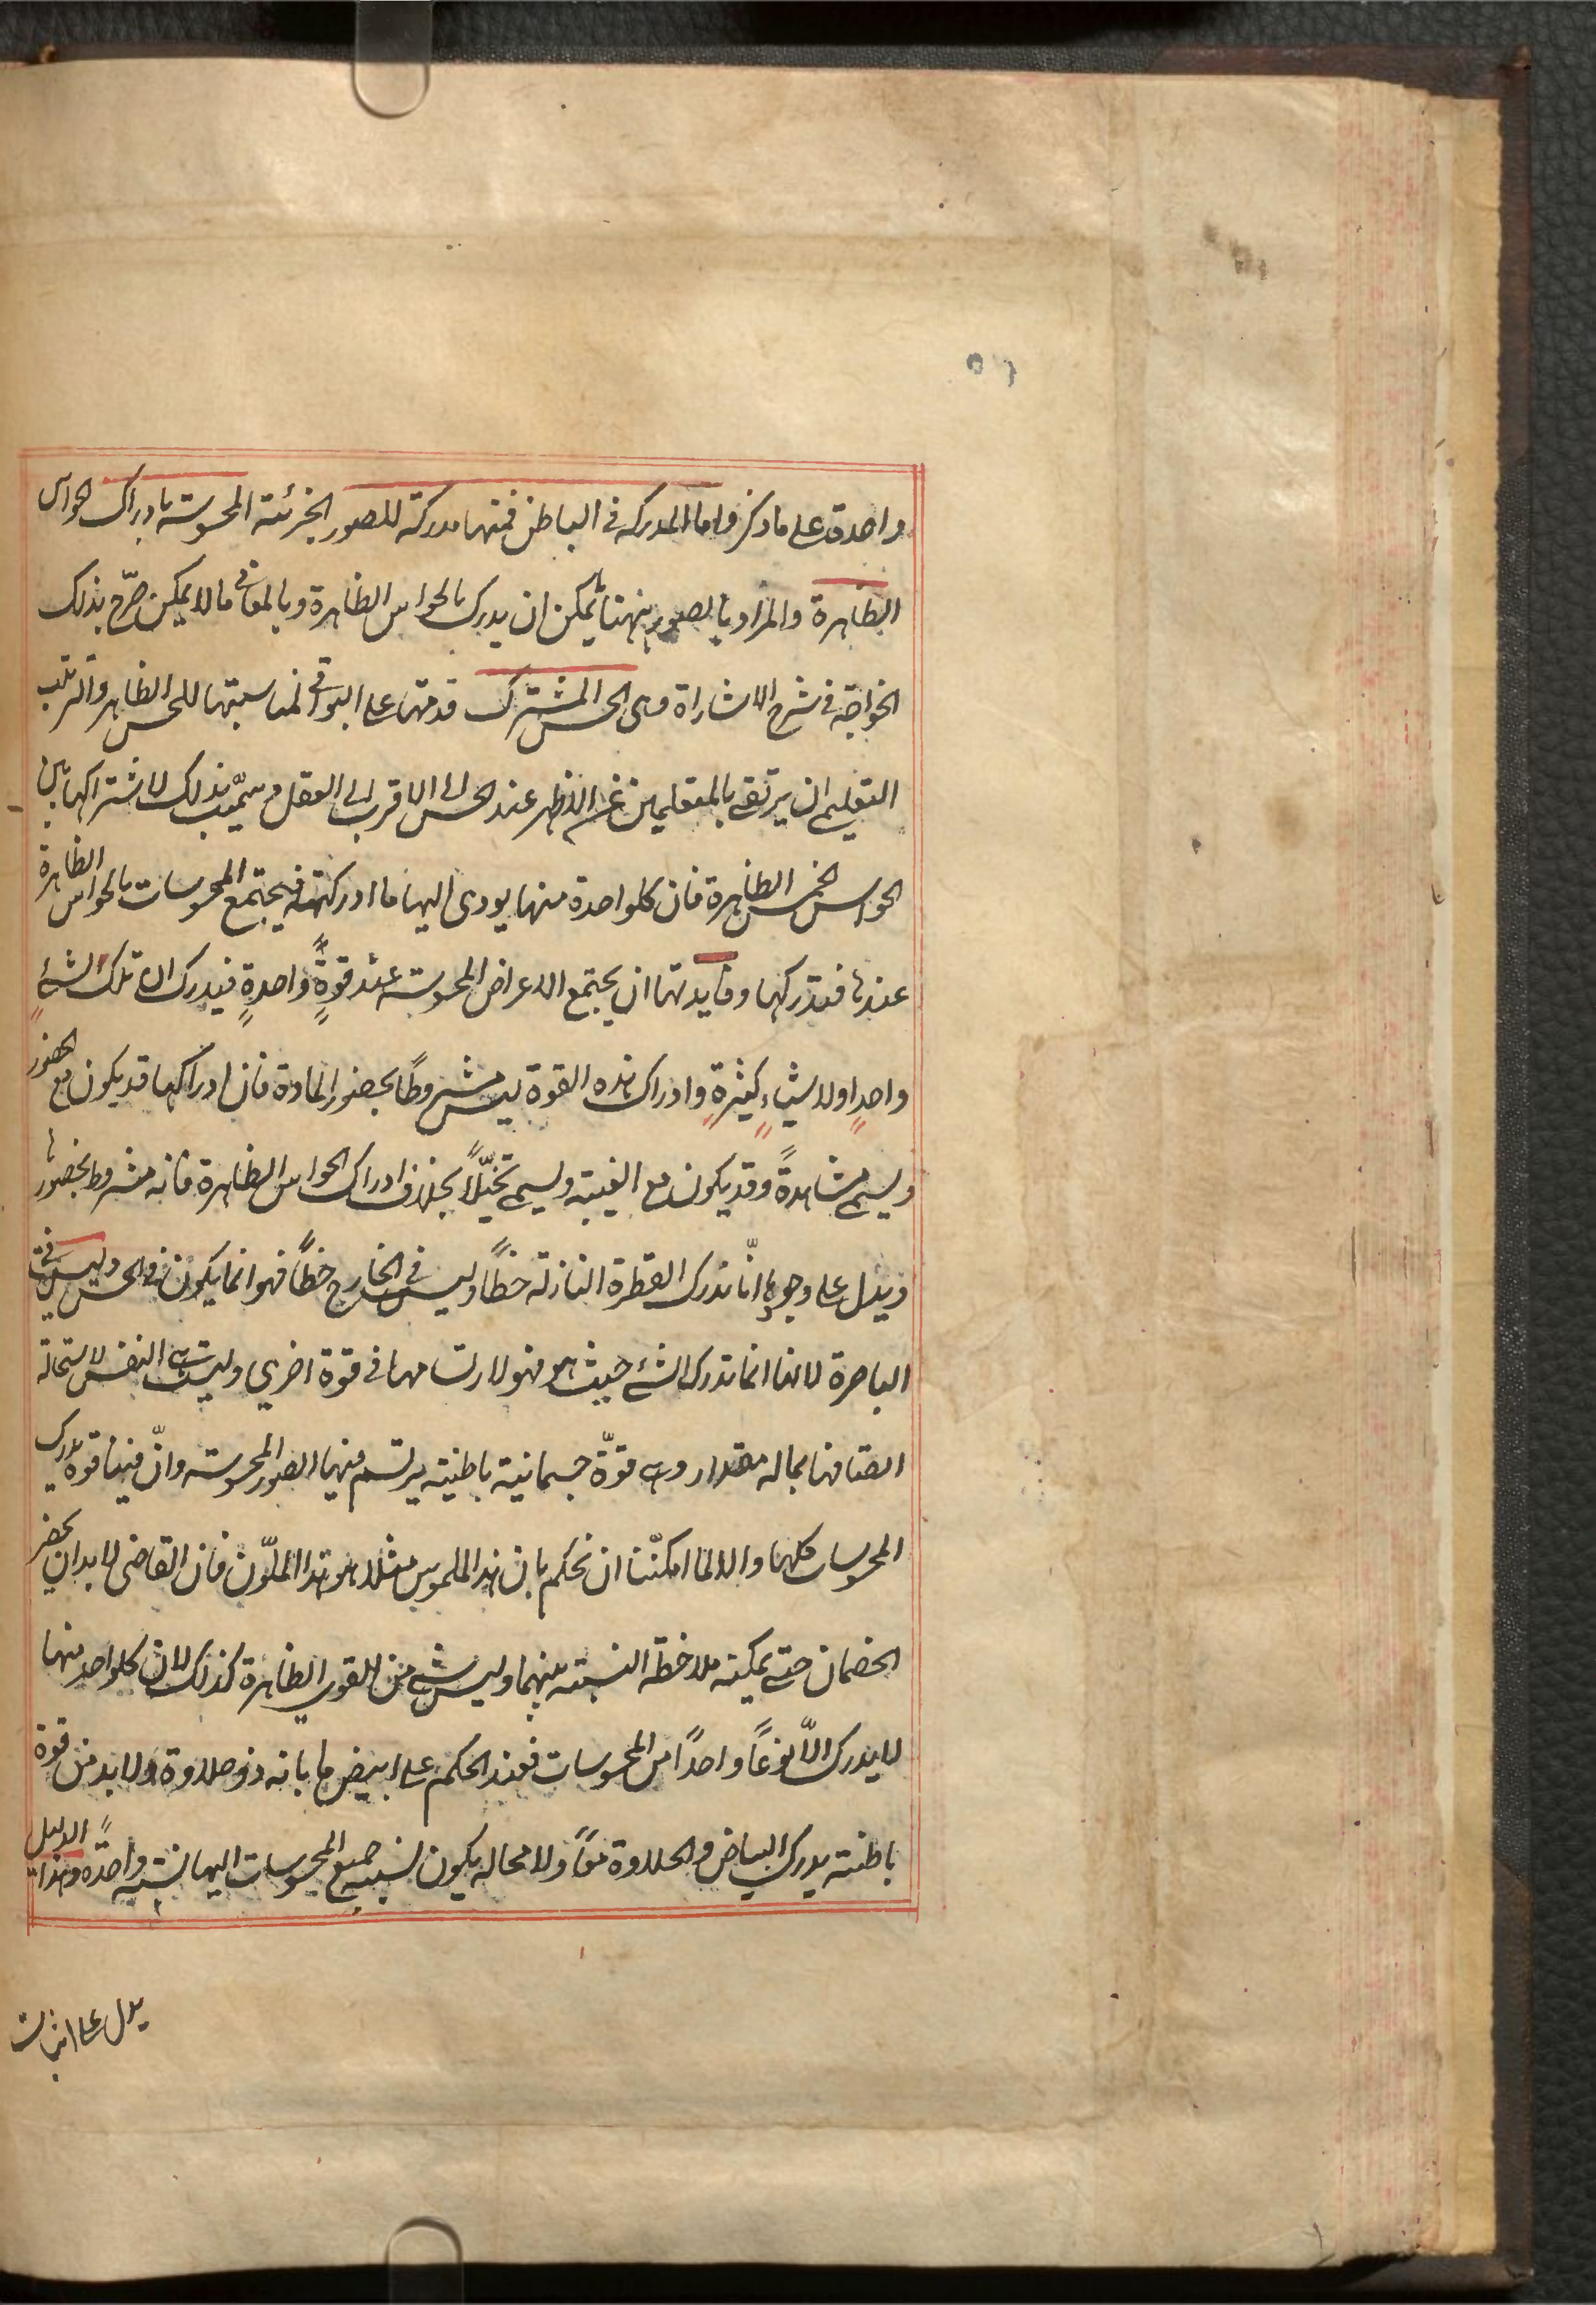 واحدة على ما ذكر واما المدركه فى الباطن فمنها مدركة للصور الجزئية المحسوسة بادراك الحواس
الظاهرة والمراد بالصور ههنا ما يمكن ان يدرك بالحواس الظاهرة وبالمعانى ما لا يمكن صرّح بذلك
الخواجة فى شرح الاشاراة وهى الحس المشترك قدمتها على البواقى لمناسبتها للحس الظاهر وترتيب
التعليم ان يرتقى بالمتعلمين عن الاظهر عند الحس الى الاقرب الى العقل وسمّيت بذلك لاشتراكها بين
الحواس الخمس الظاهرة فان كلواحدة منها يودى اليها ما ادركته فيجتمع المحسوسات بالحواس الظاهرة
عندها فتدركها وفايدتها ان يجتمع الاعراض المحسوسة عند قوةٍ واحدةٍ فيدرك ان تلك لشئٍ
واحدٍ او لاشياءٍ كثيرةٍ وادراك هذه القوة ليس مشروطًا بحضور المادة فان ادراكها قد يكون مع الحضور
ويسمى مشاهدةً وقد يكون مع الغيبة ويسمى تخيّلًا بخلاف ادراك الحواس الظاهرة فانه مشروط بحضورها
ويدل على وجودها انّا ندرك القطرة النازلة خطًا وليس فى الخارج خطًا فهو انما يكون فى الحس وليس فى
الباصرة لانها انما تدرك الشئ حيث هو فهو لارتسامها فى قوة اخرى وليست هى النفس لاستحالة
اتصافها بماله مقدار وهى قوّة جسمانية باطنية يرتسم فيها الصور المحسوسة وانّ فينا قوة يدرك
المحسوسات كلها والا لما امكنّنا ان نحكم بان هذا الملموس مثلا هو هذا الملوّن فان القاضى لابد ان يحضر
الخصمان حتى يمكنه ملاحظة النسبة بينهما وليس شئ من القوى الظاهرة كذلك لان كلواحد منها
لا يدرك الّا نوعًا واحدًا من المحسوسات فعند الحكم على ابيض ما بانه ذو حلاوة ولابد من قوة
باطنة يدرك البياض والحلاوة معًا ولا محاله يكون نسبة جميع المحسوسات اليها نسبة واحدةً وهذا الدليل
يدل على اثبات